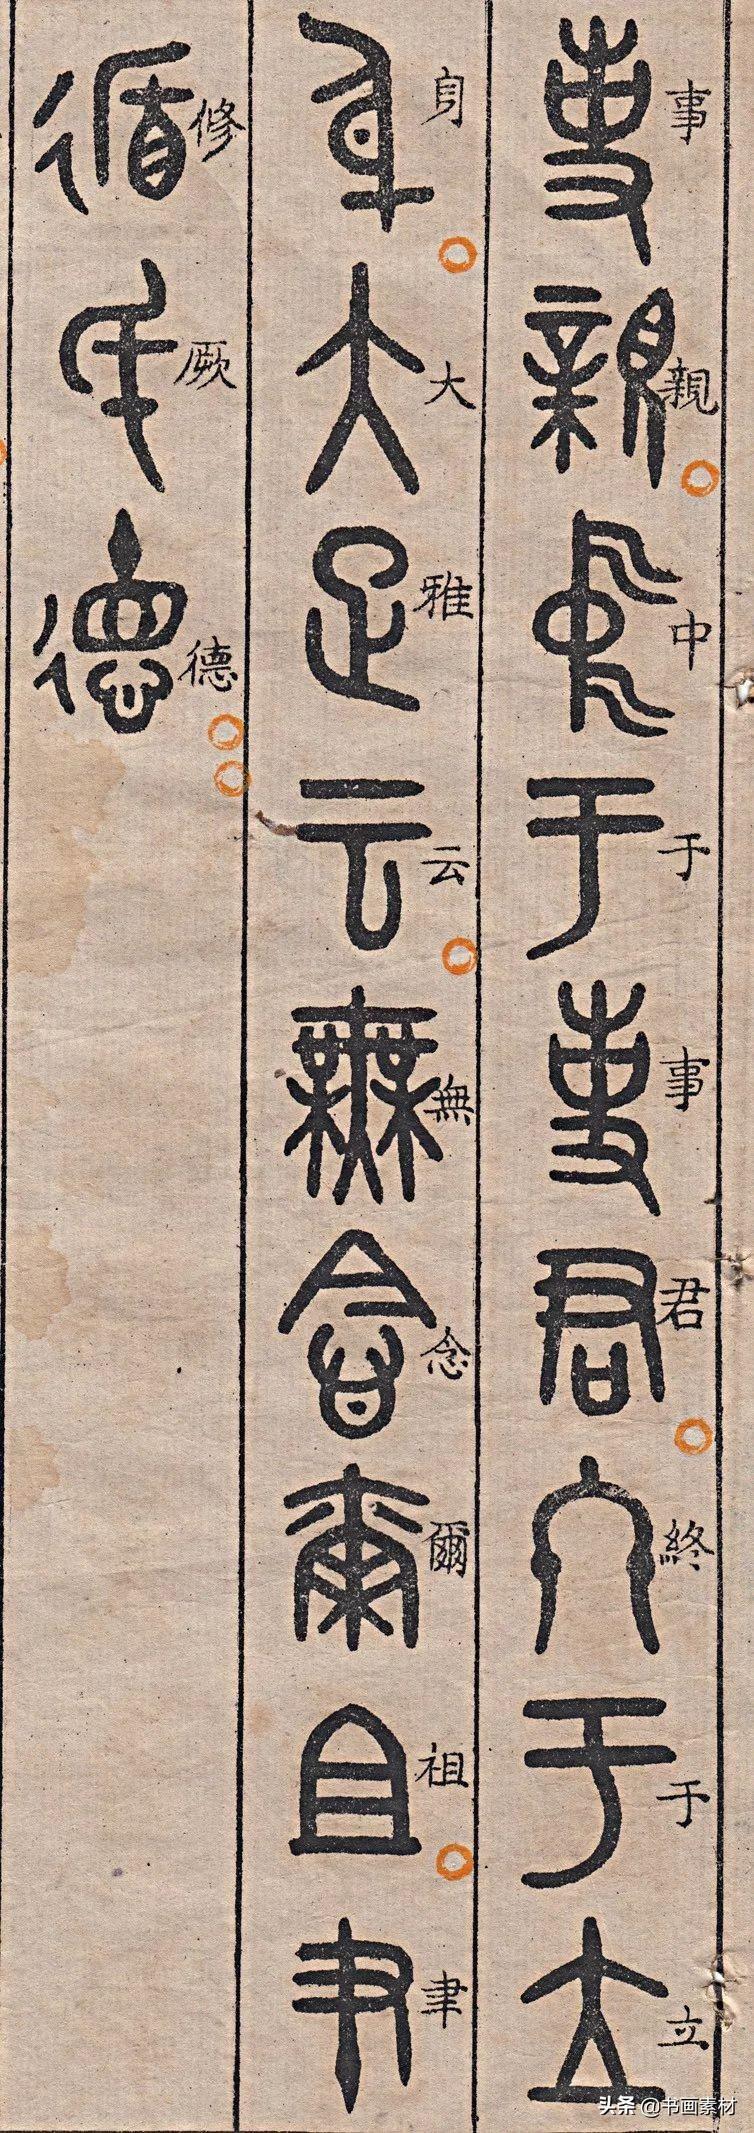 事親中于事君終于立
身大雅云無念爾祖聿
修厥德
头条 @书画素材